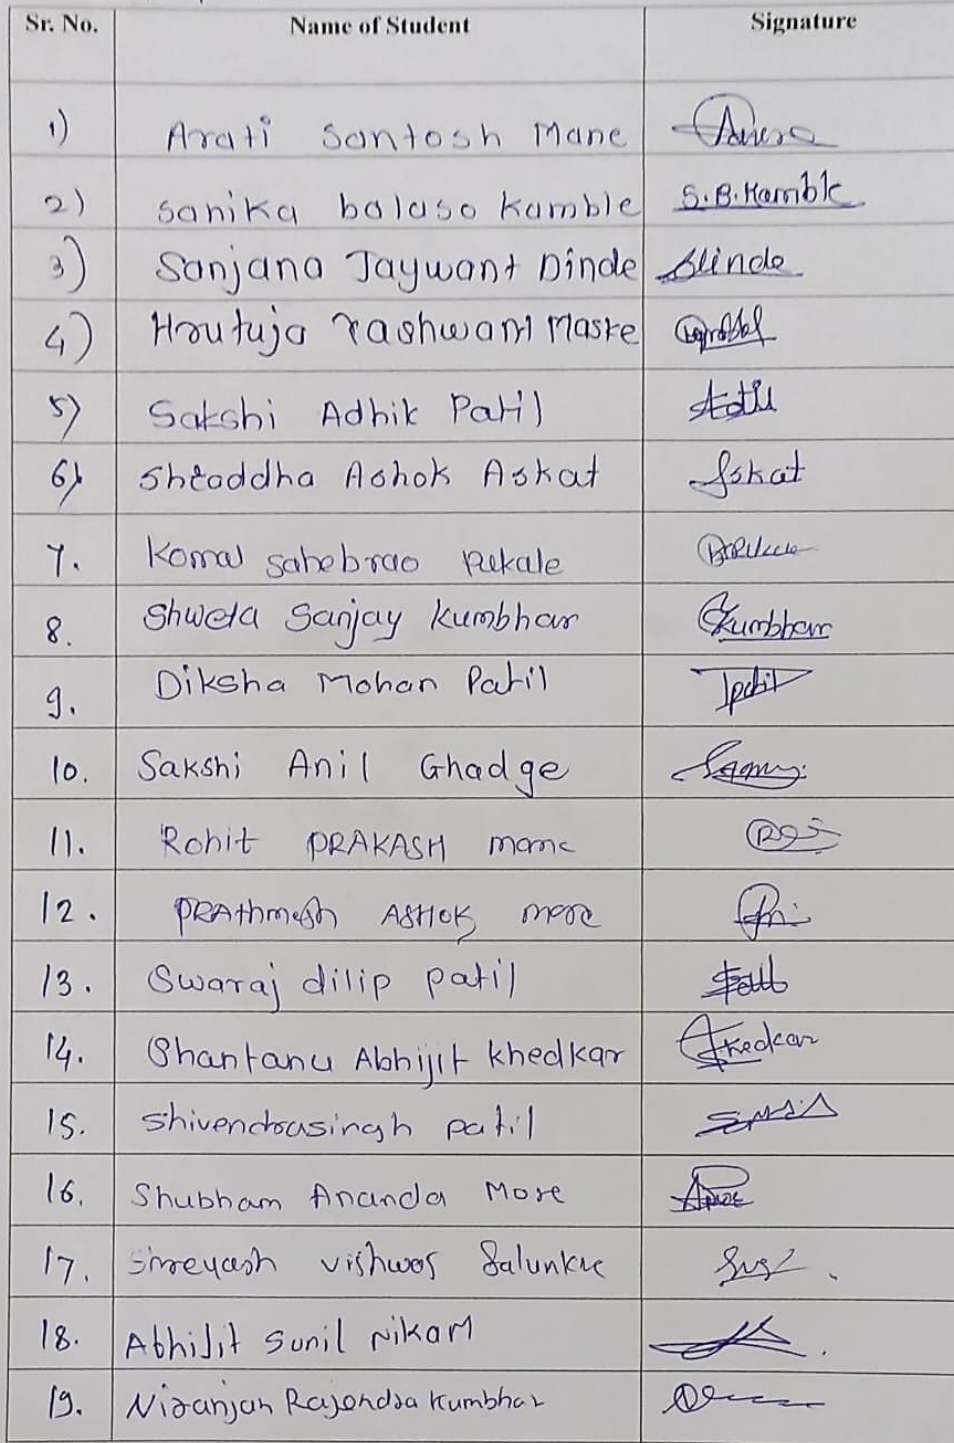 Sr. No. Name of Student Signature
1) Arati Santosh Mane
2) Sanika balaso Kamble S.B.Kamble
3) Sanjana Jaywant Dinde Dinde
4) Hrutuja Yashwant Maske
5) Sakshi Adhik Patil
6) Shraddha Ashok Askat Askat
7. Komal Sahebrao Rekale
8. Shweta Sanjay Kumbhar Kumbhar
9. Diksha Mohan Patil
10. Sakshi Anil Ghadge
11. Rohit PRAKASH mane
12. PRAthmesh ASHOK more
13. Swaraj dilip patil
14. Shantanu Abhijit Khedkar Khedkar
15. Shivendrasingh patil
16. Shubham Ananda More
17. Shreyash Vishwas Salunkhe
18. Abhijit Sunil Nikam
19. Niranjan Rajendra Kumbhar